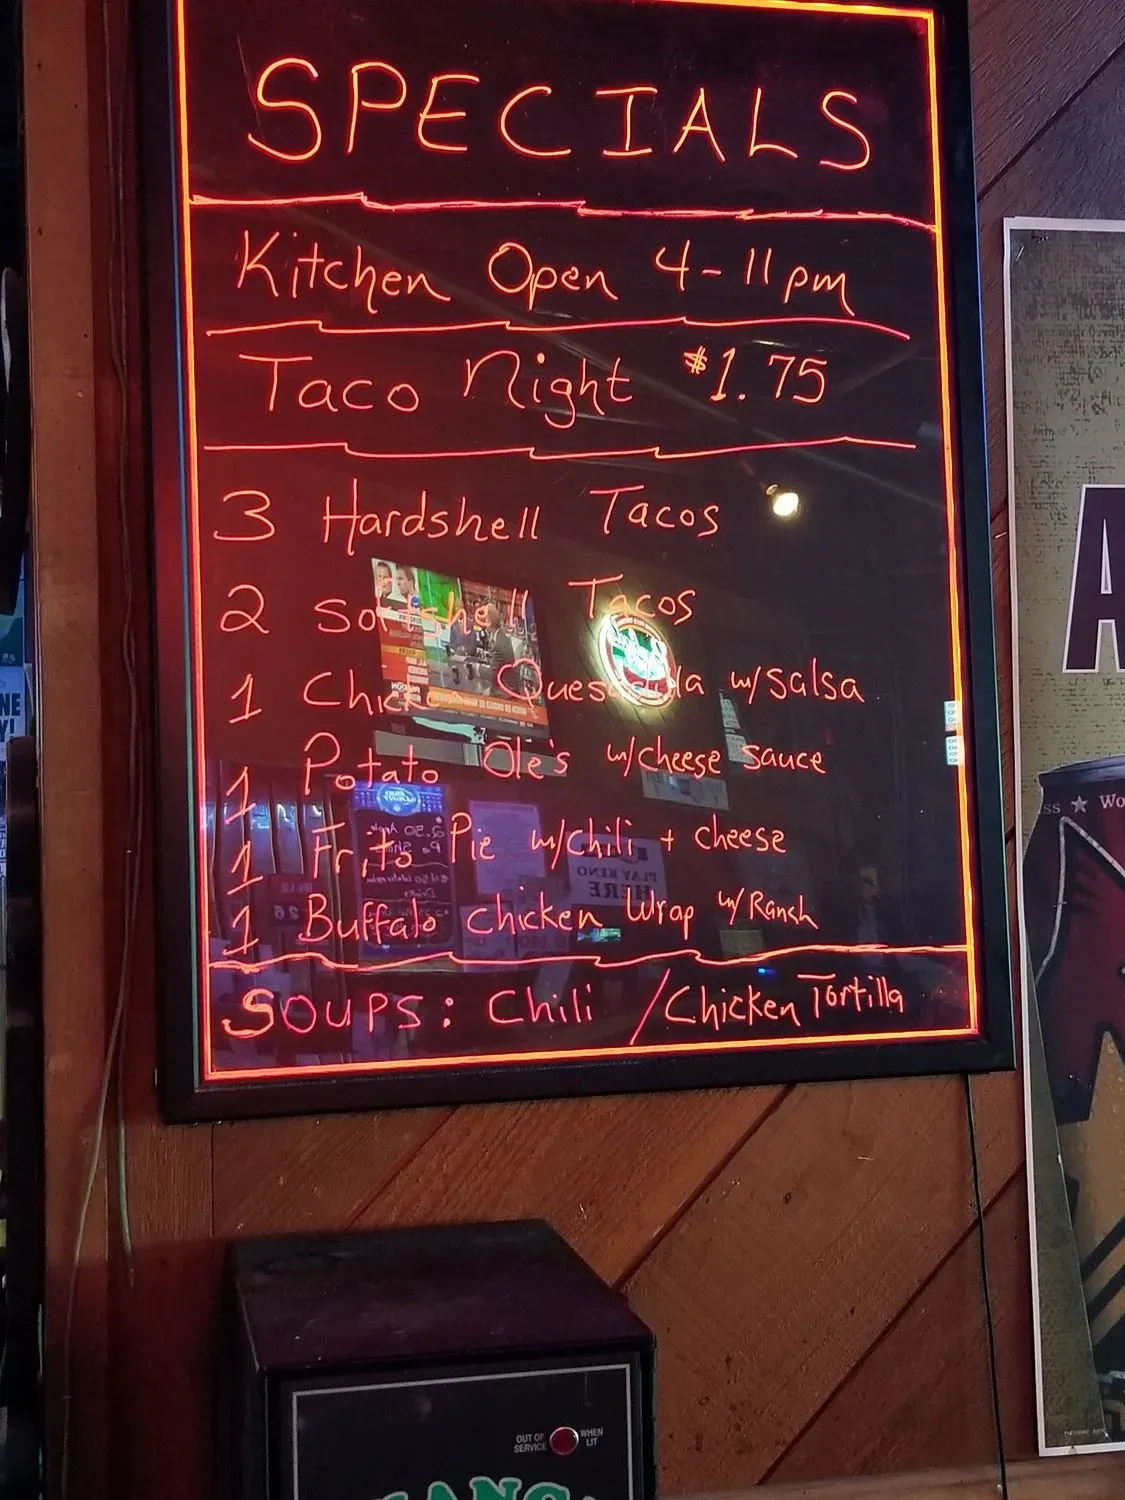 SPECIALS
Kitchen Open 4-11pm
Taco Night $1.75
3 Hardshell Tacos
2 Softshell Tacos
1 Chicken Quesadilla w/salsa
1 Potato Olé's w/cheese sauce
1 Frito Pie w/chili + cheese
1 Buffalo chicken Wrap w/Ranch
SOUPS: Chili / Chicken Tortilla
A
ss ★ Wo
NE
Y!
PLAY KENO
HERE
OUT OF SERVICE WHEN LIT